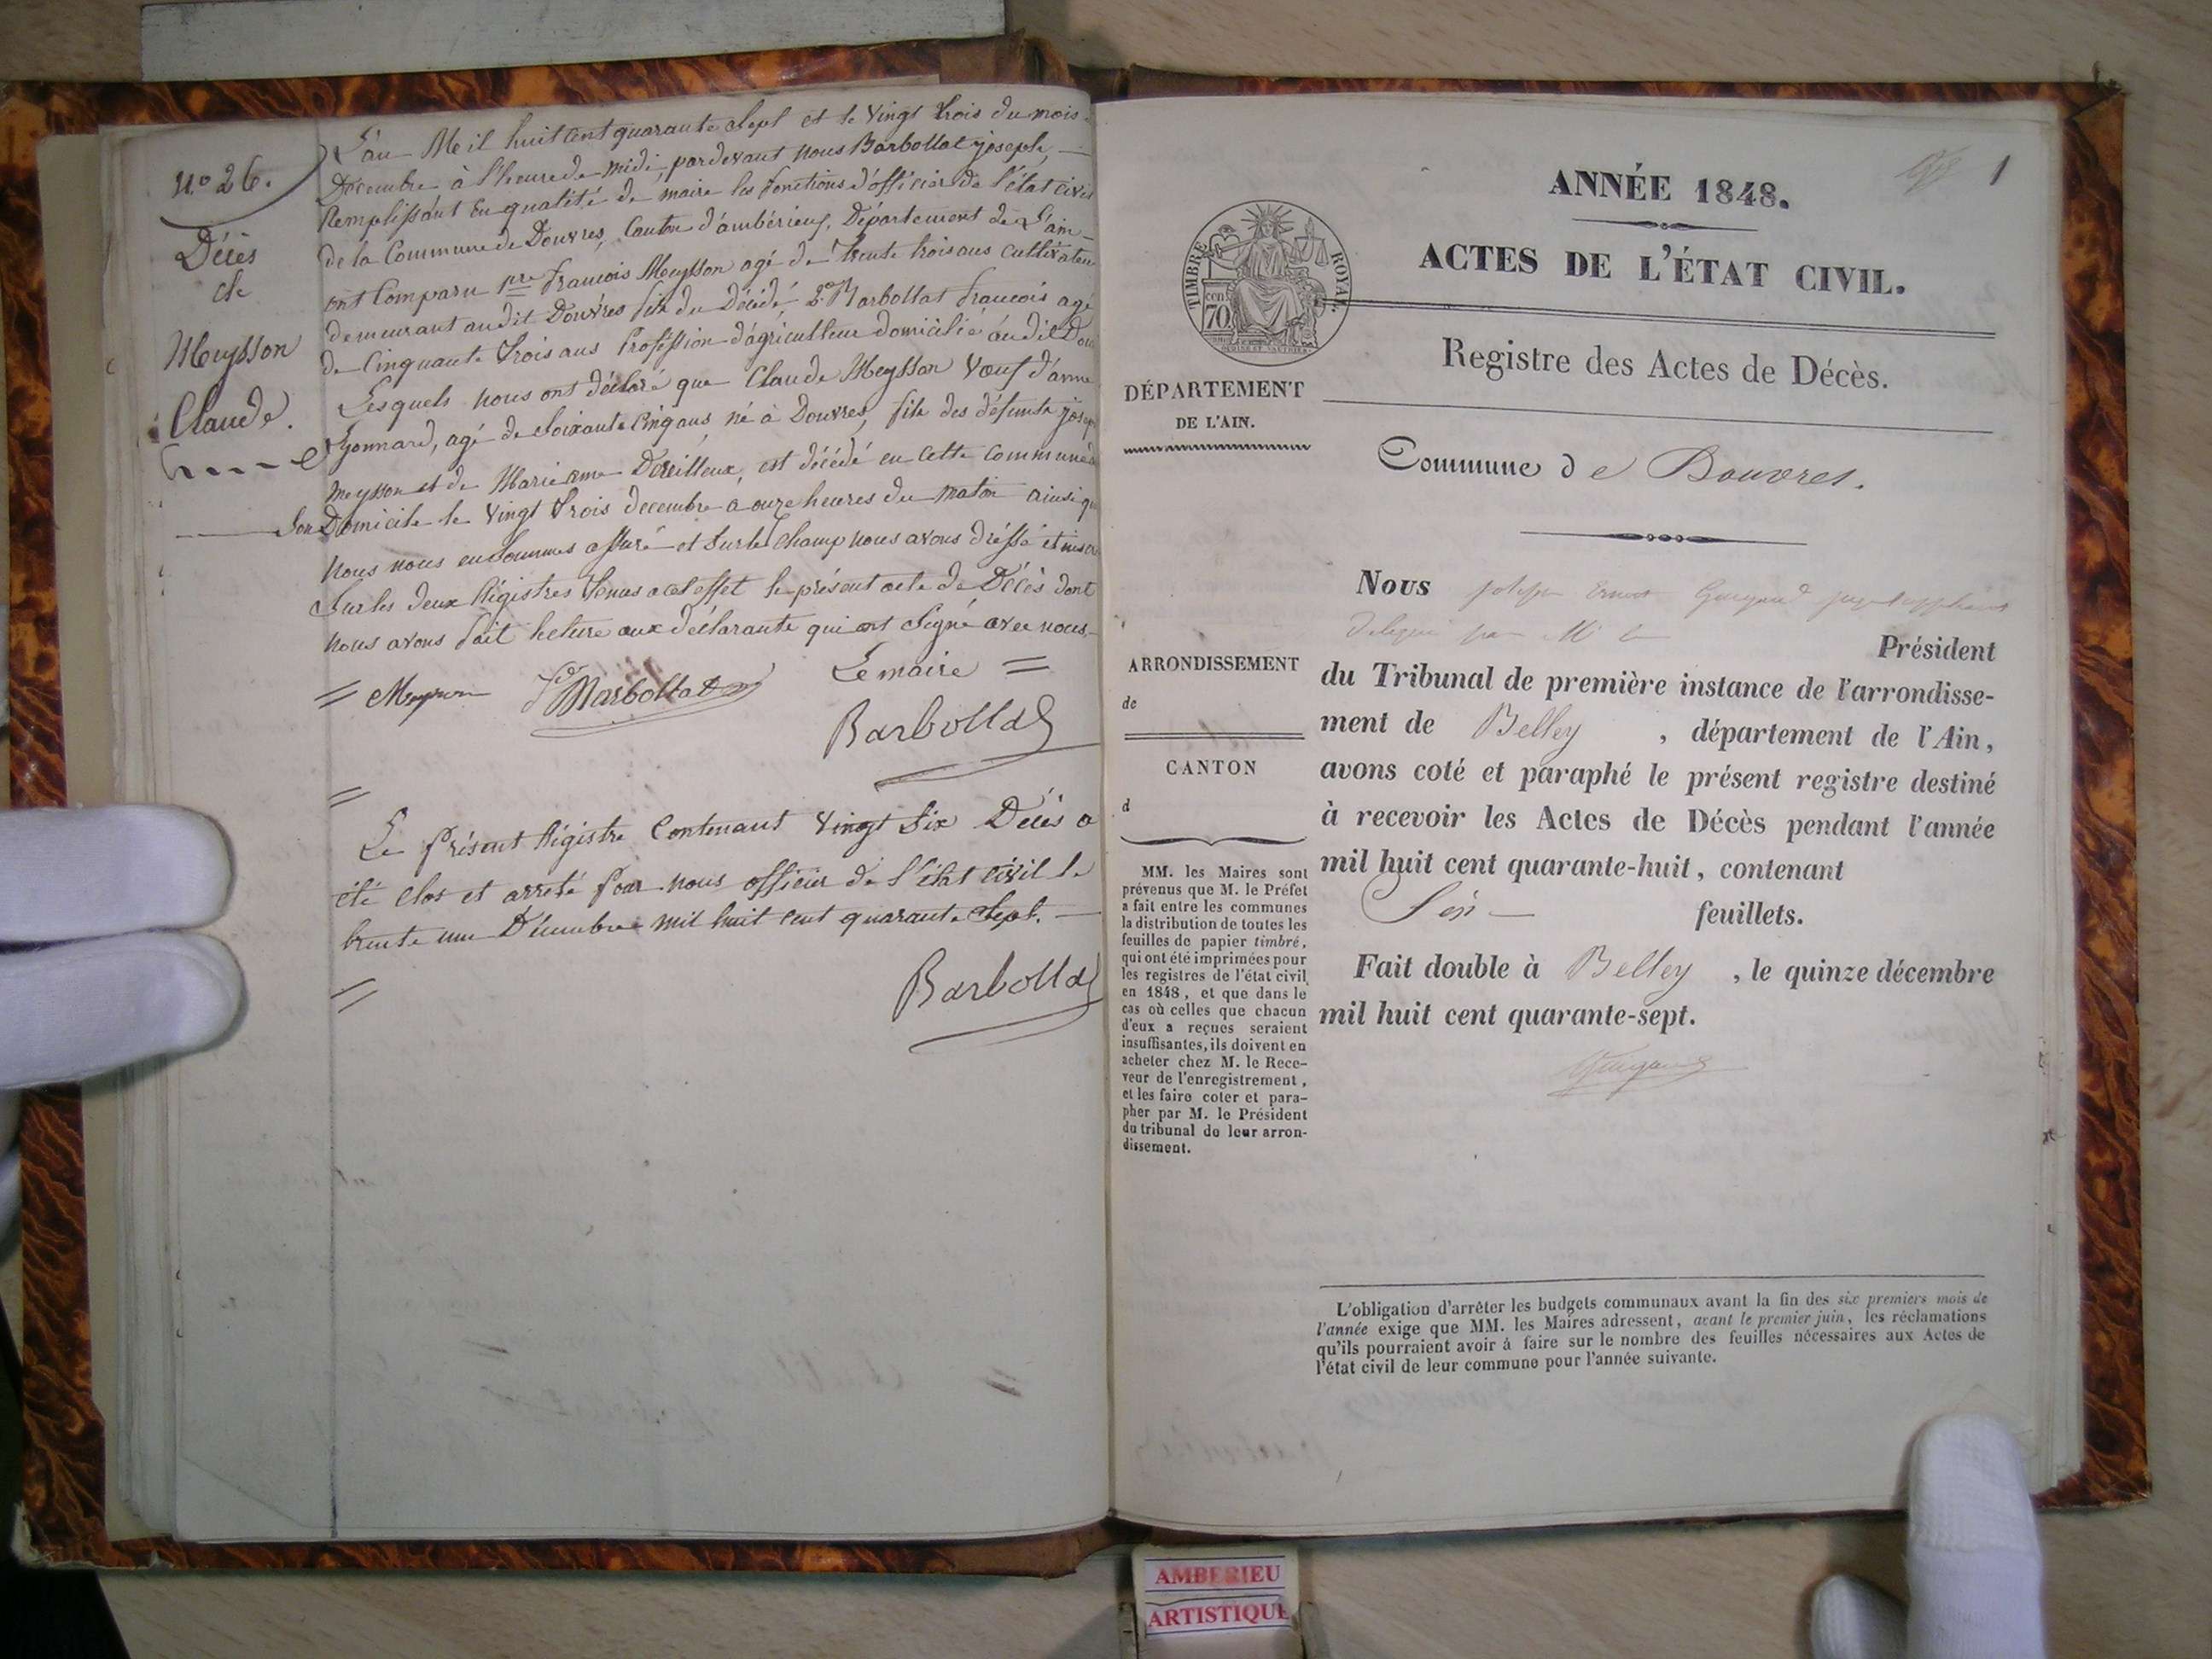 N.o 26.
Décès
de
Meysson
Claude.
L'an Mil huit cent quarante Sept et le Vingt trois du mois
Decembre à l'heure de midi, pardevant nous Barbollat joseph,
Remplissant En qualité de maire les fonctions d'officier de l'état civil
de la Commune de Douvres, Canton d'ambérieux, Département de L'ain
ont Comparu pre francois Meysson agé de trente trois ans cultivateur
demeurant audit Douvres fils du Décédé, 2o Barbollat francois agé
de Cinquante trois ans Profession d'agriculteur domicilié audit Dou
Lesquels nous ont déclaré que Claude Meysson Veuf d'anne
Gonnard, agé de Soixante Cinq ans, né à Douvres, fils des défunts josep
meysson et de Marie anne est décédé en cette commune
Son Domicile le Vingt trois decembre a onze heures du matin ainsi qu
nous nous en sommes assuré et sur le Champ nous avons dréssé et inscr
Sur les deux Régistres tenus a cet effet le présent acte de Décès dont
nous avons fait lecture aux déclarants qui ont Signé avec nous.
Le maire =
= Meysson Barbollat
Barbollat
=
Le Présent Régistre Contenant Vingt Six Décès a
été Clos et arreté par nous officier de l'état civil le
trente un Décembre mil huit cent quarante Sept.
=
Barbollat
1
ANNÉE 1848.
ACTES DE L'ÉTAT CIVIL.
TIMBRE ROYAL.
cen. 70
DÉPARTEMENT
DE L'AIN.
Registre des Actes de Décès.
Commune de Douvres.
Nous
délégué par Mr le
Président
du Tribunal de première instance de l'arrondisse-
ment de Belley , département de l'Ain,
avons coté et paraphé le présent registre destiné
à recevoir les Actes de Décès pendant l'année
mil huit cent quarante-huit, contenant
Six feuillets.
Fait double à Belley , le quinze décembre
mil huit cent quarante-sept.
ARRONDISSEMENT
de
CANTON
d
MM. les Maires sont
prévenus que M. le Préfet
a fait entre les communes
la distribution de toutes les
feuilles de papier timbré,
qui ont été imprimées pour
les registres de l'état civil
en 1848, et que dans le
cas où celles que chacun
d'eux a reçues seraient
insuffisantes, ils doivent en
acheter chez M. le Rece-
veur de l'enregistrement,
et les faire coter et para-
pher par M. le Président
du tribunal de leur arron-
dissement.
L'obligation d'arrêter les budgets communaux avant la fin des six premiers mois de
l'année exige que MM. les Maires adressent, avant le premier juin, les réclamations
qu'ils pourraient avoir à faire sur le nombre des feuilles nécessaires aux Actes de
l'état civil de leur commune pour l'année suivante.
AMBERIEU
ARTISTIQUE